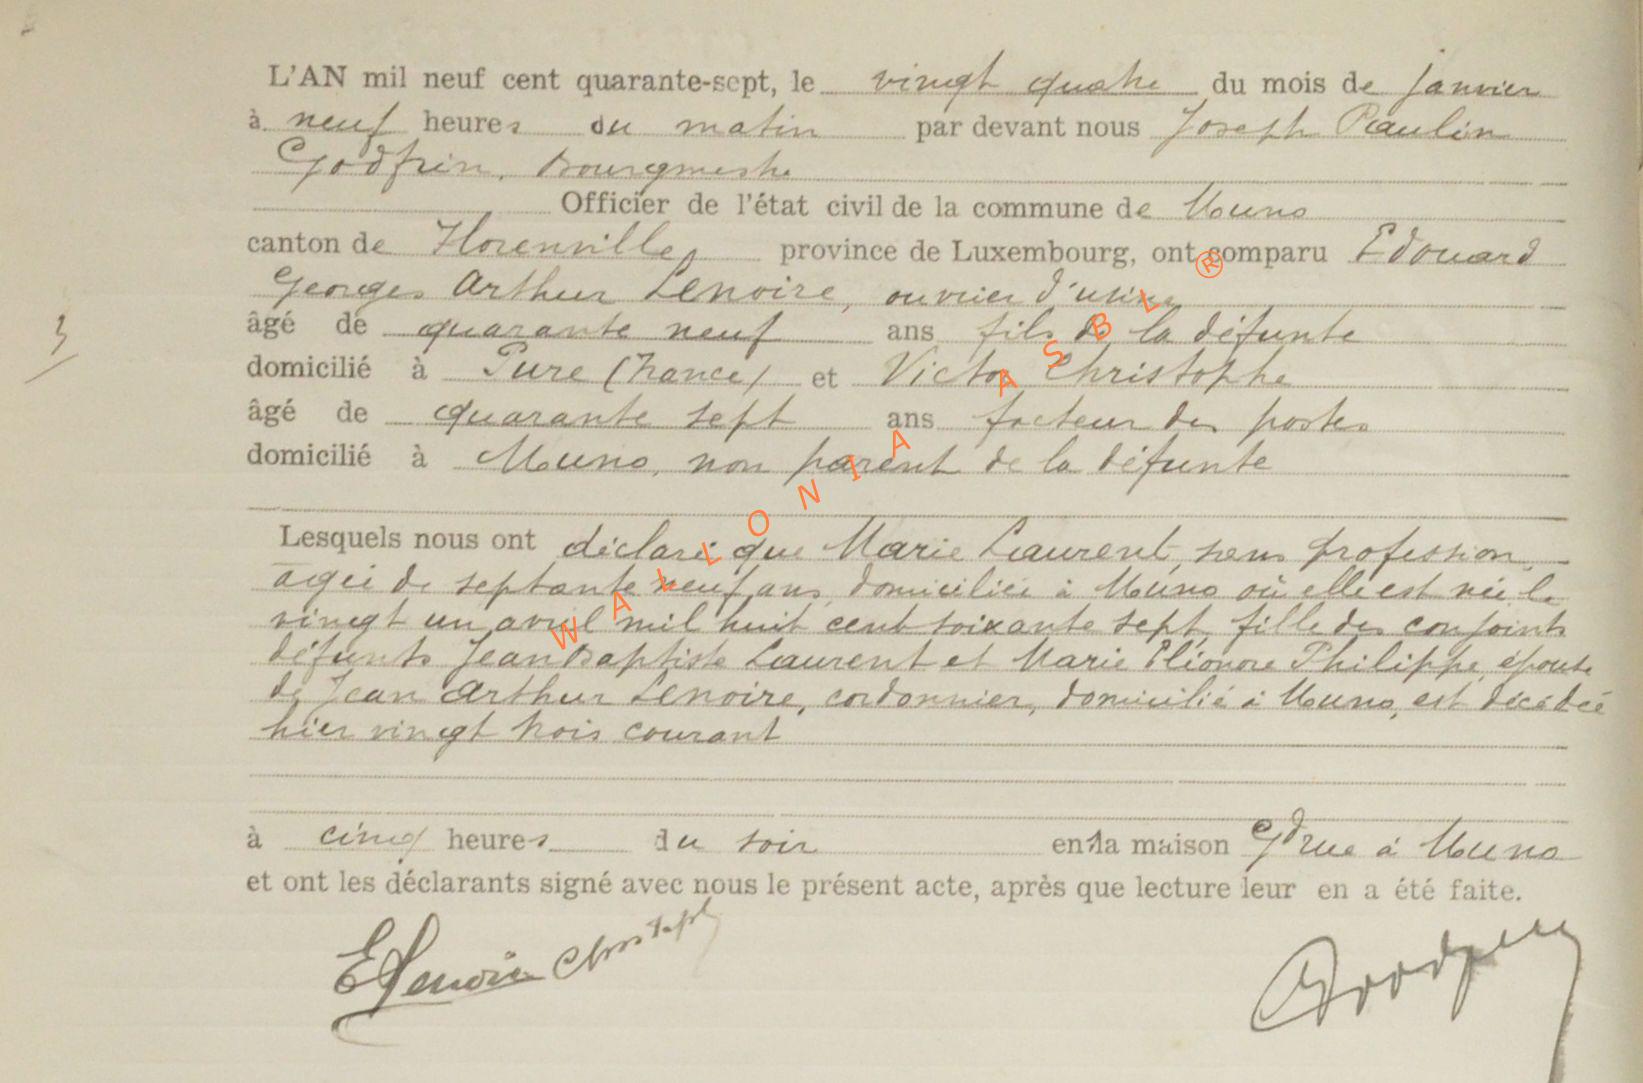 L'AN mil neuf cent quarante-sept, le vingt quatre du mois de janvier
à neuf heures du matin par devant nous Joseph Paulin
Godfrin, Bourgmestre
Officier de l'état civil de la commune de Muno
canton de Florenville province de Luxembourg, ont comparu Edouard
Georges Arthur Lenoire, ouvrier d'usine
âgé de quarante neuf ans fils de la défunte
domicilié à Pure (France) et Victor Christophe
âgé de quarante sept ans facteur des postes
domicilié à Muno, non parent de la défunte
Lesquels nous ont déclaré que Marie Laurent, sans profession
agée de septante neuf ans, domiciliée à Muno où elle est née le
vingt un avril mil huit cent soixante sept, fille des conjoints
défunts Jean Baptiste Laurent et Marie Eléonore Philippe, épouse
de Jean Arthur Lenoire, cordonnier, domicilié à Muno, est décédée
hier vingt trois courant
à cinq heures du soir en sa maison Gdrue à Muno
et ont les déclarants signé avec nous le présent acte, après que lecture leur en a été faite.
ELenoire Christophe
Godfrin
3
WALLONIA ASBL ®